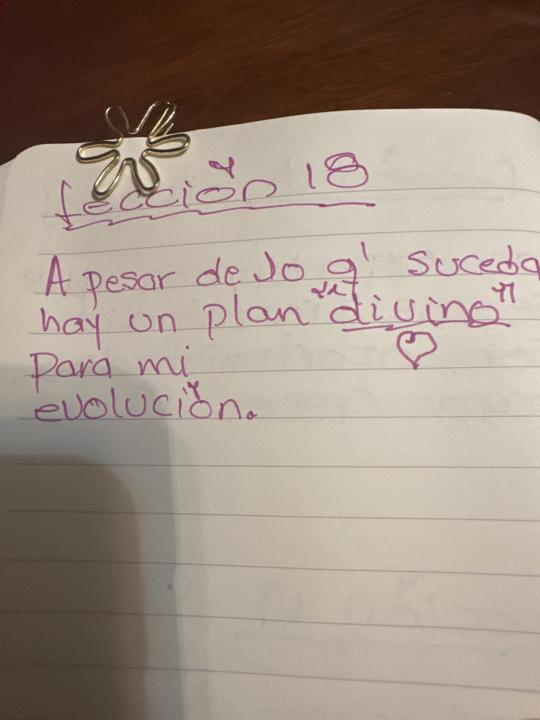 Lección 18
A pesar de lo q' suceda
hay un plan "divino"
para mi
evolución.